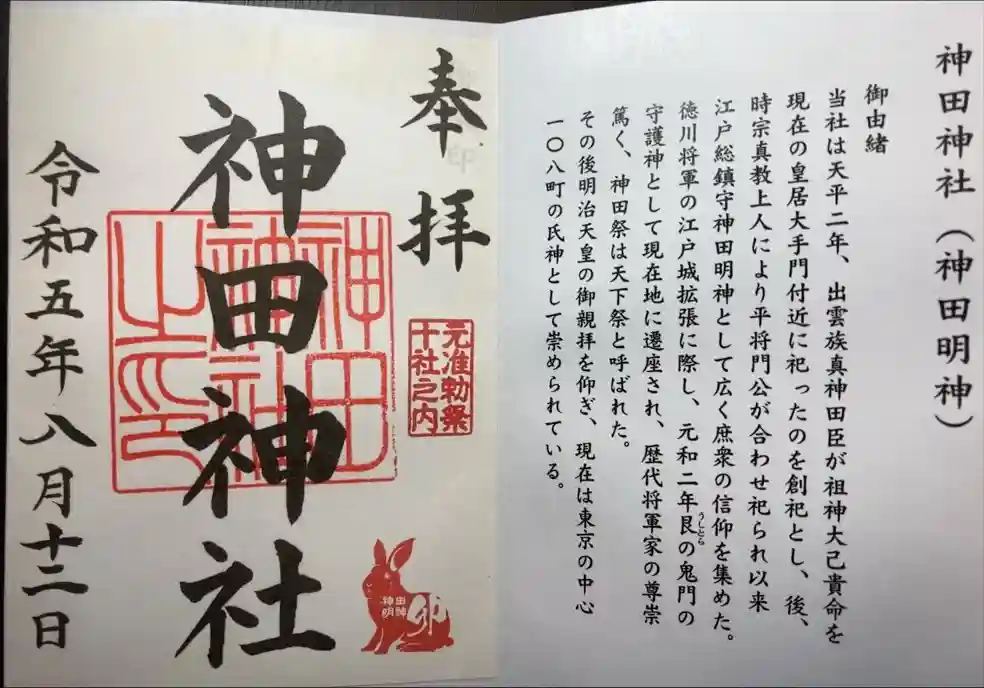 神田神社（神田明神）
御由緒
当社は天平二年、出雲族真神田臣が祖神大己貴命を
現在の皇居大手門付近に祀ったのを創祀とし、後、
時宗真教上人により平将門公が合わせ祀られ以来
江戸総鎮守神田明神として広く庶衆の信仰を集めた。
徳川将軍の江戸城拡張に際し、元和二年艮の鬼門の
うしとら
守護神として現在地に遷座され、歴代将軍家の尊崇
篤く、神田祭は天下祭と呼ばれた。
その後明治天皇の御親拝を仰ぎ、現在は東京の中心
一〇八町の氏神として崇められている。
奉拝
元准勅祭
十社之内
神田
明神
卯
神田神社
神田
神社
之印
令和五年八月十二日